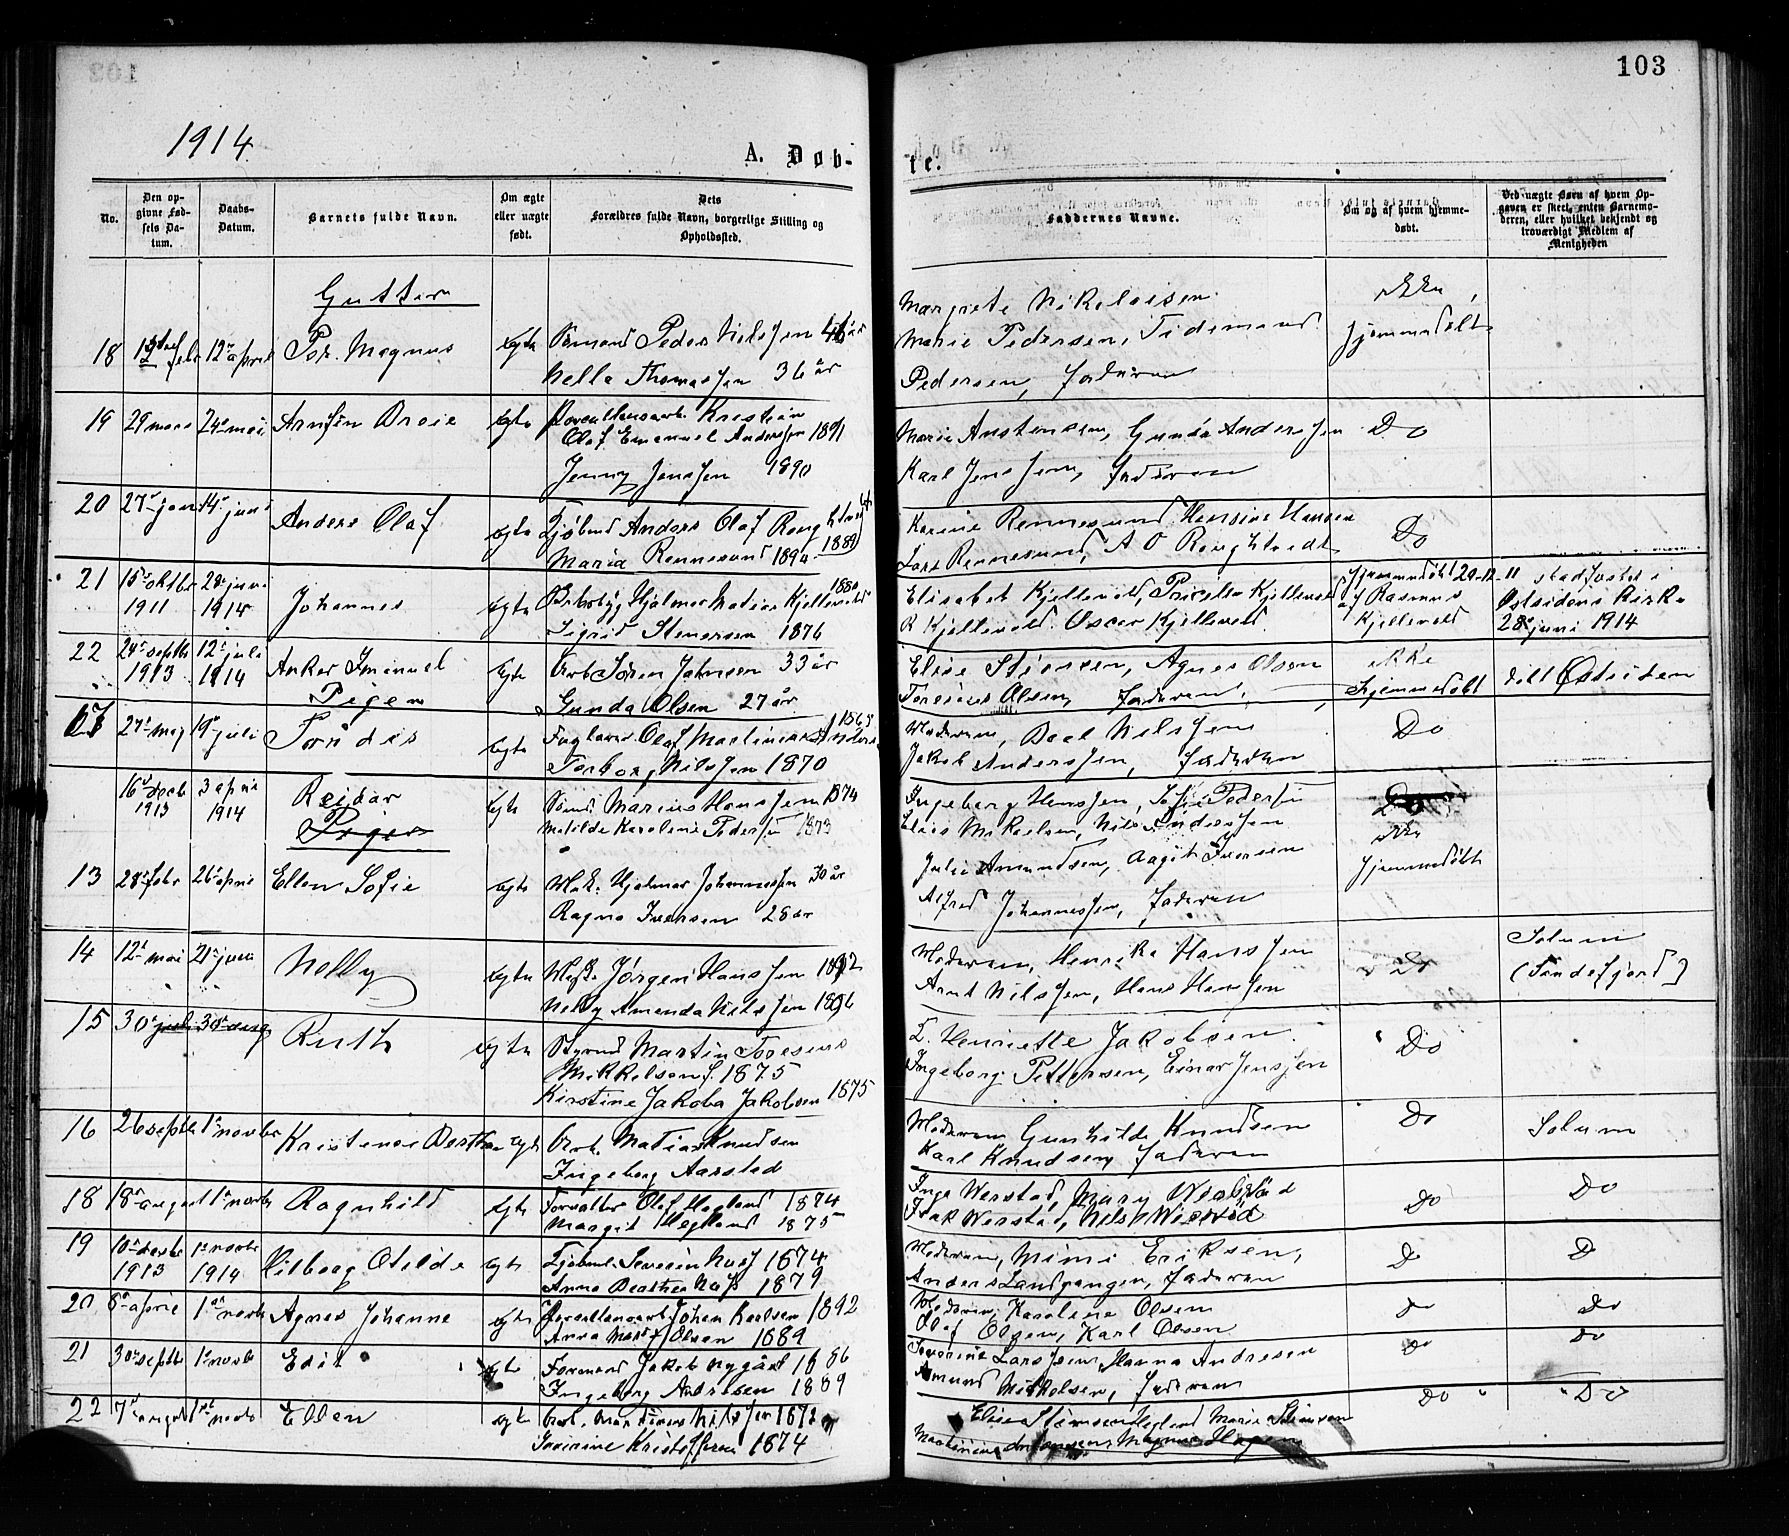 103
1914
A. Døb-
te.
No.
Den op-
givne Fød-
sels Da-
tum.
Daabs-
Datum.
Barnets fulde Navn.
Om ægte
eller uægte
født.
Dets
Forældres fulde Navn, borgerlige Stilling og
Opholdssted.
Faddernes Navne.
Om og af hvem hjemme-
døbt.
Ved uægte Børn af hvem Op-
gaven er skeet, enten Barnemo-
deren, eller hvilket bekjendt og
troværdigt Medlem af
Menigheden
Gutter
18 febr 12 april Tor. Magnus egte Sømand Peder Nilssen
Nella Thomassen 36 år
Margrete Nikolaisen
Marie Pedersen, Tidemand
Pedersen, faderen
ikke
hjemmedøbt
19 29 mars 24 mai Arnfin Dreie egte Porcellensarb. Kristian
Olaf Emanuel Anderssen 1891
Jenny Jenssen 1890
Marie Anstensen, Gunda Anderssen
Karl Jenssen, faderen
Do
20 27 jan 14 juni Anders Olaf egte Tjøbmd Anders Olaf
Maria Rennesund 1890
Karine Rennesund Hansine Hansen
Lars Rennesund, A O
Do
21 15 oktbr 1911 28 juni 1914 Johannes egte Hjalmar Matias Kjellevold 1880
Sigrid Stenersen 1876
Elisabet Kjellevold, Pricella Kjellevold
R Kjellevold. Oscar Kjellevold
hjemmedøbt 29-12-11
af Rasmus
Kjellevold
stadfæstet i
Østsidens kirke
28 juni 1914
22 24 septbr 1913 12 juli 1914 Anker Imanuel egte Arb Søren Johnsen 33 år
Gunda Olsen 27 år
Elise Stiansen, Agnes Olsen
Toresius Olsen, faderen
ikke
hjemmedøbt
døbt Østsiden
Pigen
17 27 maj 19 juli Tordis egte Olaf Martinius
Torborg Nilssen 1870
Moderen, Nilssen
Jakob Anderssen, faderen
Do
16 decb 1913 3 april 1914 Reidar egte Sømd Marius Hanssen 1874
Matilde Karoline Pedersen 1873
Ingeborg Hanssen, Sofie Pedersen
Elias Mikaelsen, Nils Anderssen
ikke
Piger
13 28 febr 26 april Ellen Sofie egte Mask. Hjalmar Johannessen 30 år
Ragna Iversen 28 år
Julie Amundsen, Aagot Iversen
Alfred Johannessen, faderen
hjemmedøbt
14 12 mai 21 juni Nelly egte Jørgen Hanssen 1892
Nelly Amanda Nilssen 1896
Moderen, Henrika Hanssen
Arnt Nilssen, Hans Hanssen
Do
Solum
(Sandefjord)
15 30 juli 30 aug Ruth egte Styrmd Martin Toresius
Mikkelsen f. 1875
Kirstine Jakoba Jakobsen 1875
E. Henriette Jakobsen
Ingeborg Pettersen, Einar Jenssen
Do
16 26 septbr 1 novbr Kristence Berthea egte Arb. Matias Knudsen
Ingeborg Aarstad
Moderen Gunhilda Knudsen
Karl Knudsen, faderen
Do
Solum
18 18 august 1 novb Ragnhild egte Forvalter Olaf Hegland 1874
Margit Hegland 1875
Inga Werstad, Mary Werstad
Isak Werstad, Nils Werstad
Do
Do
19 10 decbr 1913 1 novbr 1914 Vilborg Otilde egte Tjøbmd. Severin Næss 1874
Anna Berthea Næss 1879
Moderen, Mimi Eriksen,
Anders Landgangen, faderen
Do
Do
20 8 april 1 novb Agnes Johanne egte Porcellensarb Johan Karlsen 1892
Anna Marie Olsen 1889
Moderen, Karoline Olsen
Olaf Olsen, Karl Olsen
Do
Do
21 30 septbr 1 novbr Edit egte Formand Jakob Nygård 1886
Ingeborg Andresen 1889
Severine Larssen, Hanna Andresen
Amund Mikkelsen, faderen
Do
Do
22 7 august 1 novb Ellen egte Arb. Martinius Nilssen 1872
Severine Kristoffersen 1874
Elise Stiansen Hegland Marie Stiansen
Magnus Hagen
Do
Do